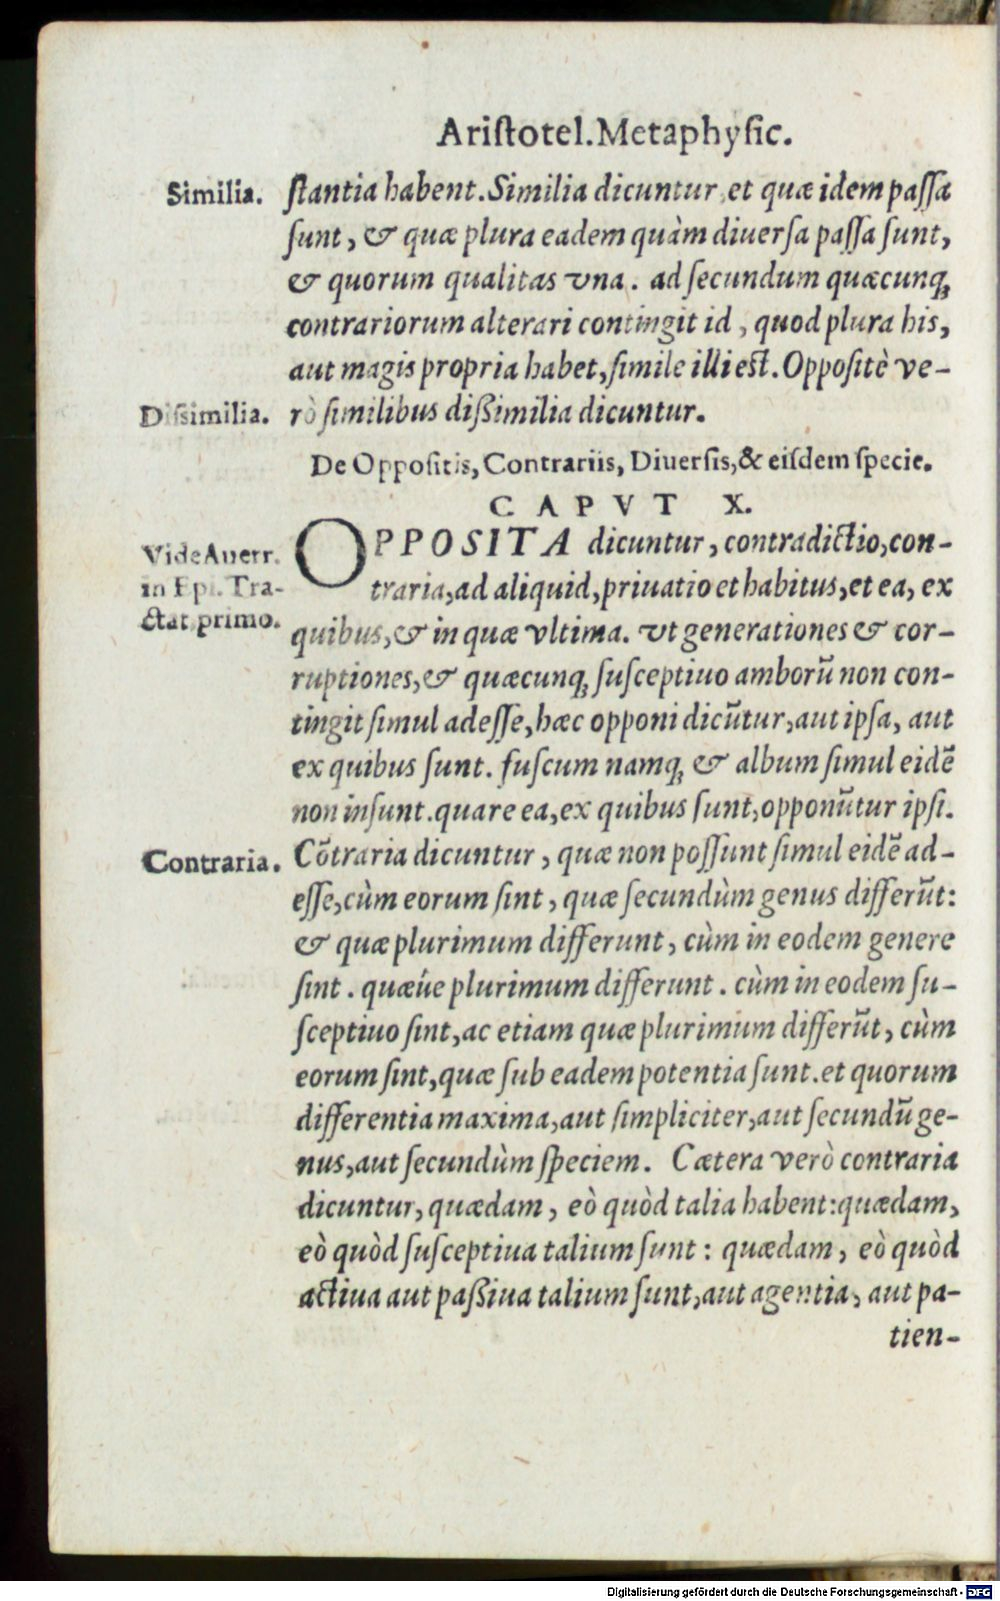 Aristotel. Metaphysic.
Similia.
ſtantia habent. Similia dicuntur et quæ idem paſſa
ſunt, & quæ plura eadem quàm diuerſa paſſa ſunt,
& quorum qualitas vna. ad ſecundum quæcunq;
contrariorum alterari contingit id, quod plura his,
aut magis propria habet, ſimile illi est. Oppoſitè ve-
Diſsimilia.
rò ſimilibus diſsimilia dicuntur.
De Oppoſitis, Contrariis, Diuerſis, & eiſdem ſpecie.
CAPVT X.
OPPOSITA dicuntur, contradictio, con-
Vide Auerr.
in Epi. Tra-
ctat primo.
traria, ad aliquid, priuatio et habitus, et ea, ex
quibus, & in quæ vltima. vt generationes & cor-
ruptiones, & quæcunq; ſuſceptiuo amborũ non con-
tingit ſimul adeſſe, hæc opponi dicũtur, aut ipſa, aut
ex quibus ſunt. fuſcum namq; & album ſimul eidẽ
non inſunt. quare ea, ex quibus ſunt, opponũtur ipſi.
Contraria.
Cõtraria dicuntur, quæ non poſſunt ſimul eidẽ ad-
eſſe, cùm eorum ſint, quæ ſecundùm genus differũt:
& quæ plurimum differunt, cùm in eodem genere
ſint. quæúe plurimum differunt. cùm in eodem ſu-
ſceptiuo ſint, ac etiam quæ plurimum differũt, cùm
eorum ſint, quæ ſub eadem potentia ſunt. et quorum
differentia maxima, aut ſimpliciter, aut ſecundũ ge-
nus, aut ſecundùm ſpeciem. Cætera verò contraria
dicuntur, quædam, eò quòd talia habent: quædam,
eò quòd ſuſceptiua talium ſunt: quædam, eò quòd
actiua aut paſsiua talium ſunt, aut agentia, aut pa-
tien-
Digitalisierung gefördert durch die Deutsche Forschungsgemeinschaft - DFG